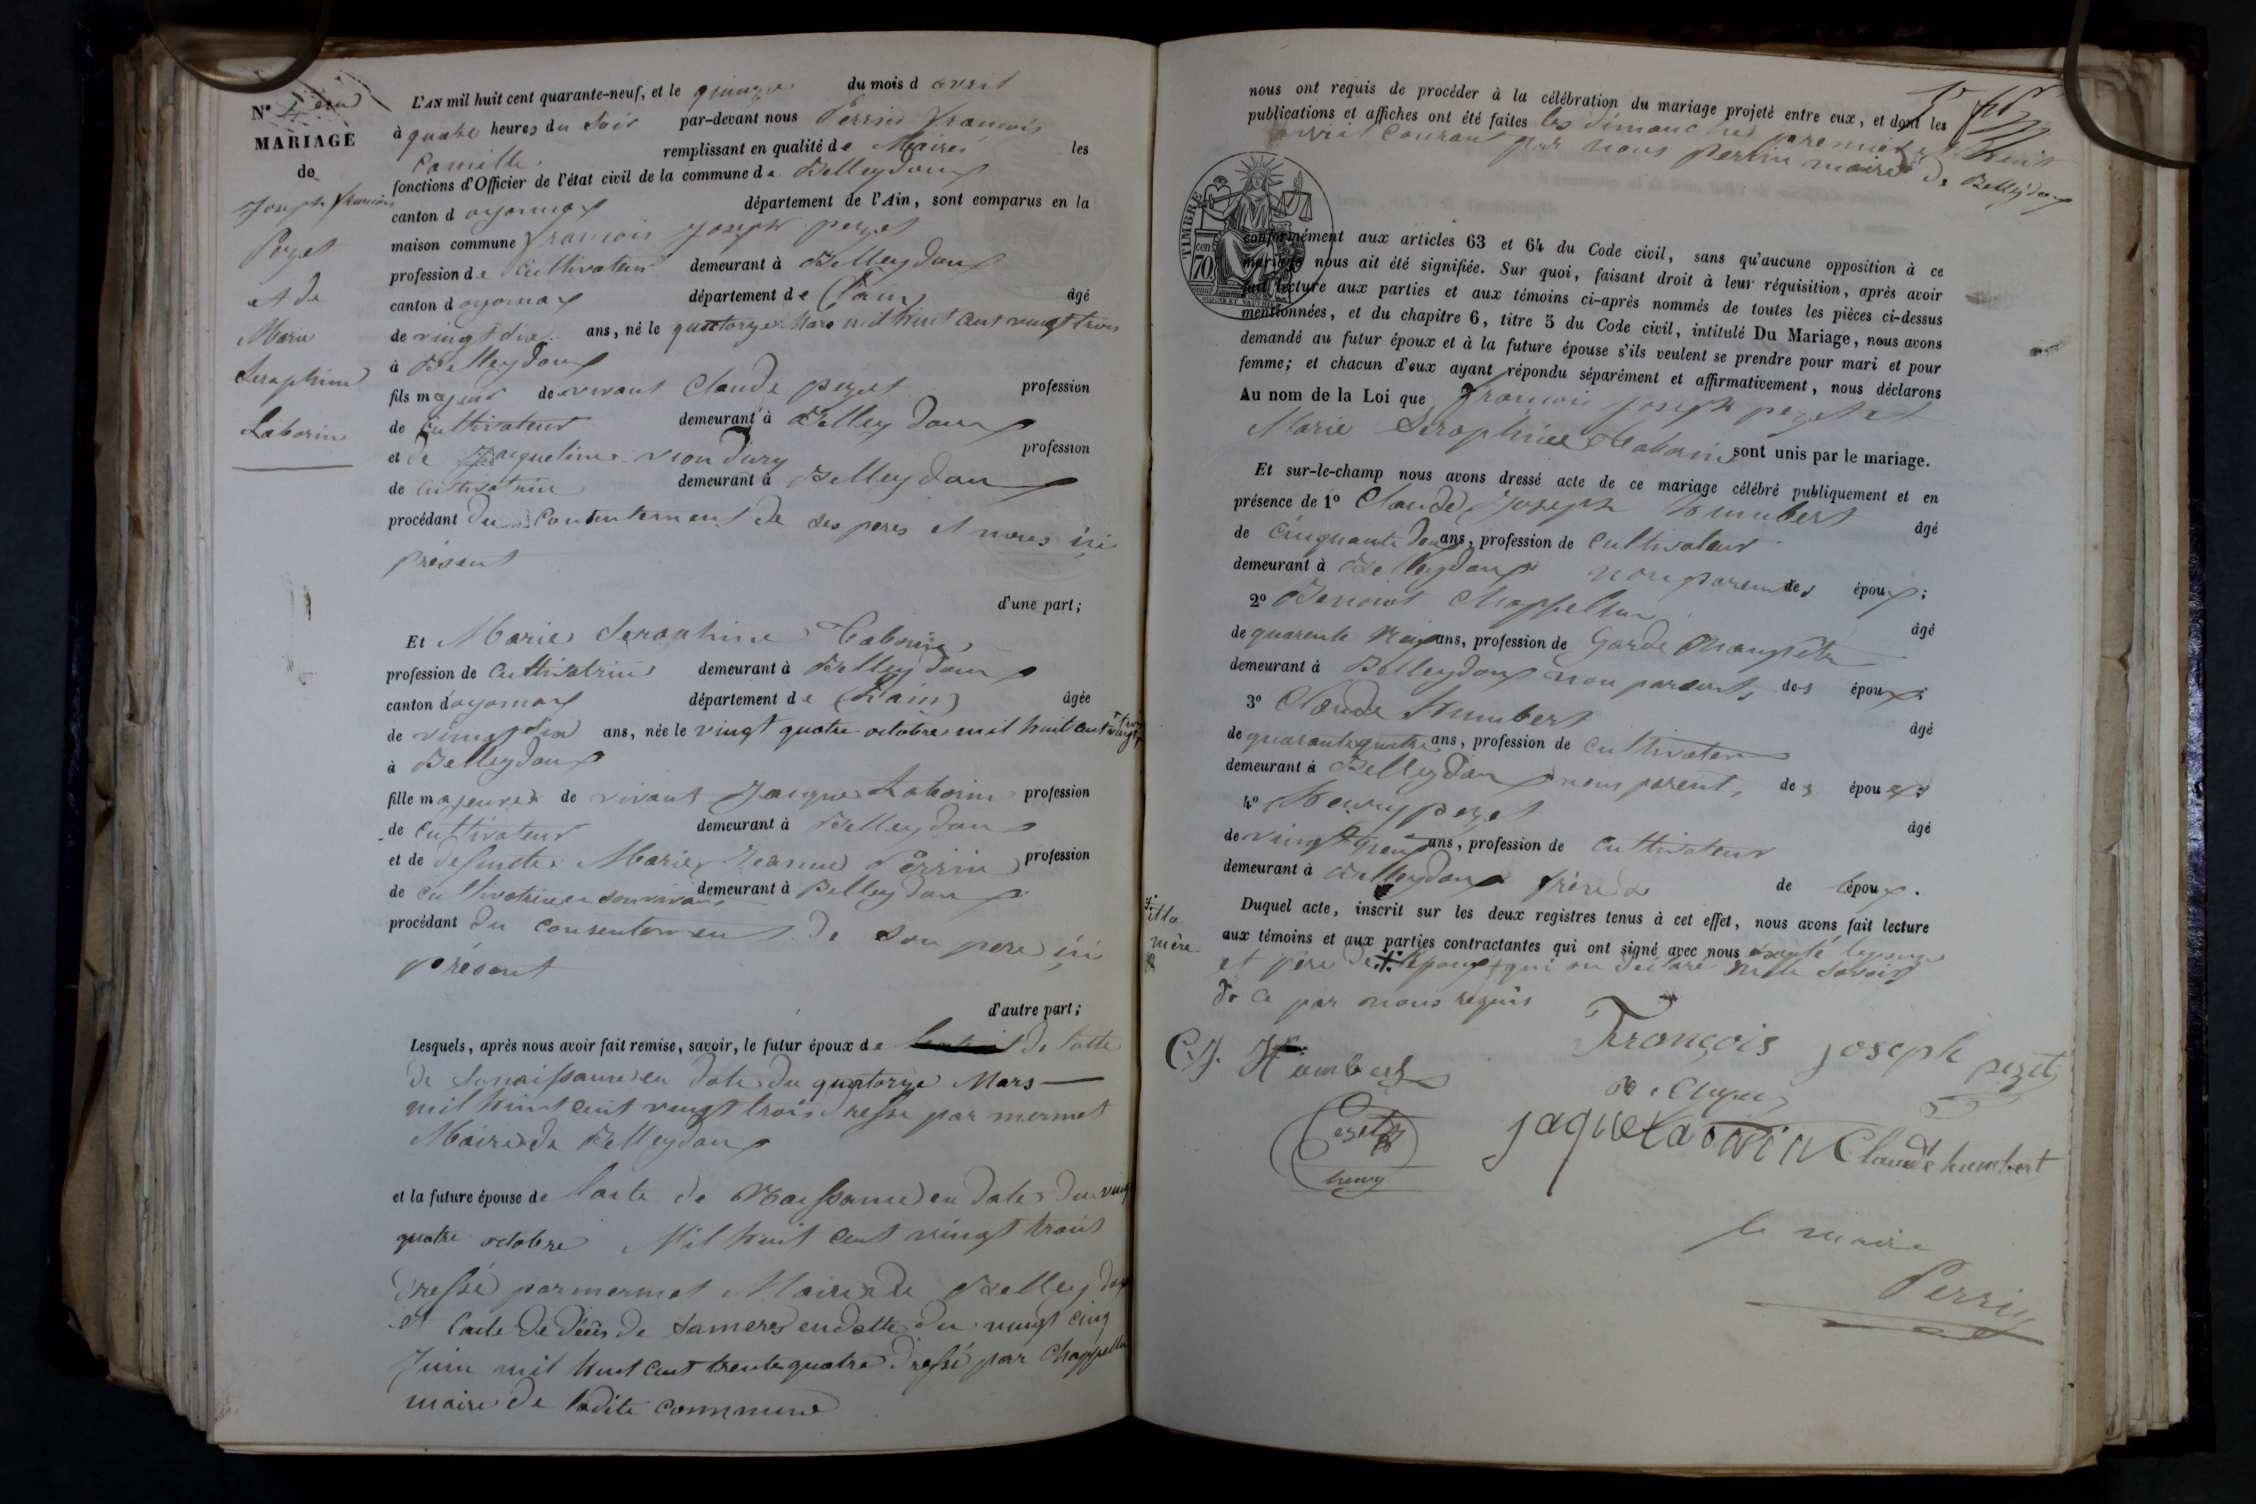 N° 4 eme
MARIAGE
de
Joseph françois
Pezet
et de
Marie
Seraphine
Laborin
L'AN mil huit cent quarante-neuf, et le quinze du mois d avril
à quatre heures du soir par-devant nous Perrin françois
Camille remplissant en qualité de Maire les
fonctions d'Officier de l'état civil de la commune de Belleydoux
canton d oyonnax département de l'Ain, sont comparus en la
maison commune françois joseph pezet
profession de cultivateur demeurant à Belleydoux
canton d oyonnax département de l'ain âgé
de vingt six ans, né le quatorze Mars mil huit cent vingt trois
à Belleydoux
fils majeur de vivant Claude pezet profession
de cultivateur demeurant à Belleydoux
et de Jacqueline vion dury profession
de cultivatrice demeurant à Belleydoux
procédant du consentement de ses peres et meres ici
présent
d'une part;
Et Marie Seraphine Laborin
profession de cultivatrice demeurant à Belleydoux
canton d'oyonnax département de (l'ain) âgée
de vingt six ans, née le vingt quatre octobre mil huit cent vingt trois
à Belleydoux
fille majeure de vivant Jacques Laborin profession
de cultivateur demeurant à Belleydoux
et de defuncte Marie Jeanne Perrin profession
de cultivatrice en son vivant demeurant à Belleydoux
procédant du consentement de son pere ici
présent
d'autre part;
Lesquels, après nous avoir fait remise, savoir, le futur époux de de l'acte
de sa naissance en date du quatorze Mars
mil huit cent vingt trois dressé par mermet
Maire de Belleydoux
et la future épouse de l'acte de Naissance en date du vingt
quatre octobre Mil huit cent vingt trois
dressé par mermet Maire de Belleydoux
et l'acte de décès de sa mere en datte du vingt cinq
Juin mil huit cent trente quatre dressé par Chappelluz
maire de ladite commune
nous ont requis de procéder à la célébration du mariage projeté entre eux, et dont les
publications et affiches ont été faites les dimanches premier et huit
avril courant par nous perrin maire de Belleydoux
TIMBRE
cen 70
conformément aux articles 63 et 64 du Code civil, sans qu'aucune opposition à ce
mariage nous ait été signifiée. Sur quoi, faisant droit à leur réquisition, après avoir
fait lecture aux parties et aux témoins ci-après nommés de toutes les pièces ci-dessus
mentionnées, et du chapitre 6, titre 5 du Code civil, intitulé Du Mariage, nous avons
demandé au futur époux et à la future épouse s'ils veulent se prendre pour mari et pour
femme; et chacun d'eux ayant répondu séparément et affirmativement, nous déclarons
Au nom de la Loi que françois joseph pezet et
Marie Seraphine Laborin sont unis par le mariage.
Et sur-le-champ nous avons dressé acte de ce mariage célébré publiquement et en
présence de 1° Claude Joseph humbert âgé
de cinquante deux ans, profession de cultivateur
demeurant à Belleydoux non parent des époux;
2° Benoit Chappelluz âgé
de quarente ans, profession de Garde Champêtre
demeurant à Belleydoux non parents des époux;
3° Claude humbert âgé
de quarante quatre ans, profession de cultivateur
demeurant à Belleydoux non parent des époux;
4° Henry pezet âgé
de vingt ans, profession de cultivateur
demeurant à Belleydoux frère de l'époux.
Duquel acte, inscrit sur les deux registres tenus à cet effet, nous avons fait lecture
aux témoins et aux parties contractantes qui ont signé avec nous excepté l'epouse
et pére de l'époux qui on déclaré ne le savoir
de ce par nous requis
et la
mère
C. J. Humbert
François joseph pezet
pezet
henry
jaque laborin
Claude humbert
le maire
Perrin